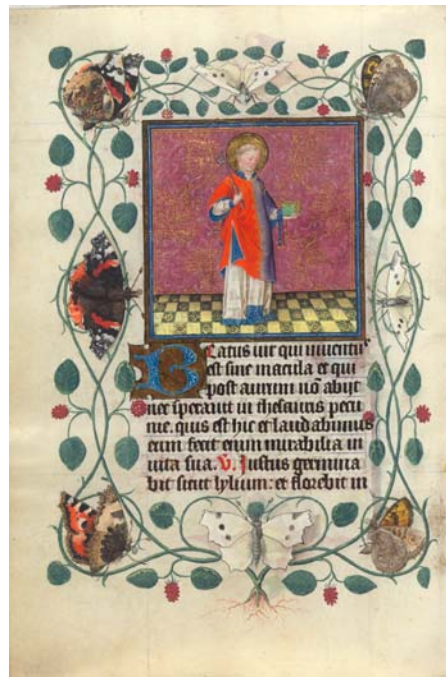 Beatus vir qui inventus
est sine macula et qui
post aurum nō abijt
nec speravit in thesauris pecu
nie. quis est hic et laudabimus
eum fecit enim mirabilia in
vita sua. V. Justus germina
bit sicut lylium: et florebit in